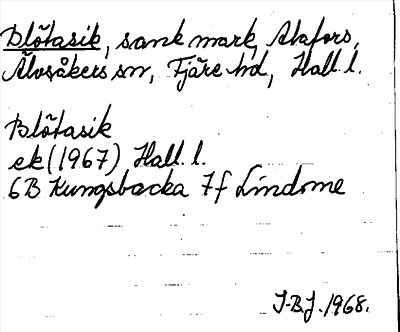 Blötasik, sank mark, Alafors,
Älvsåkers sn, Fjäre hd, Hall. l.
Blötasik
ek (1967) Hall. l.
6B Kungsbacka 7f Lindome
J-BJ. 1968.